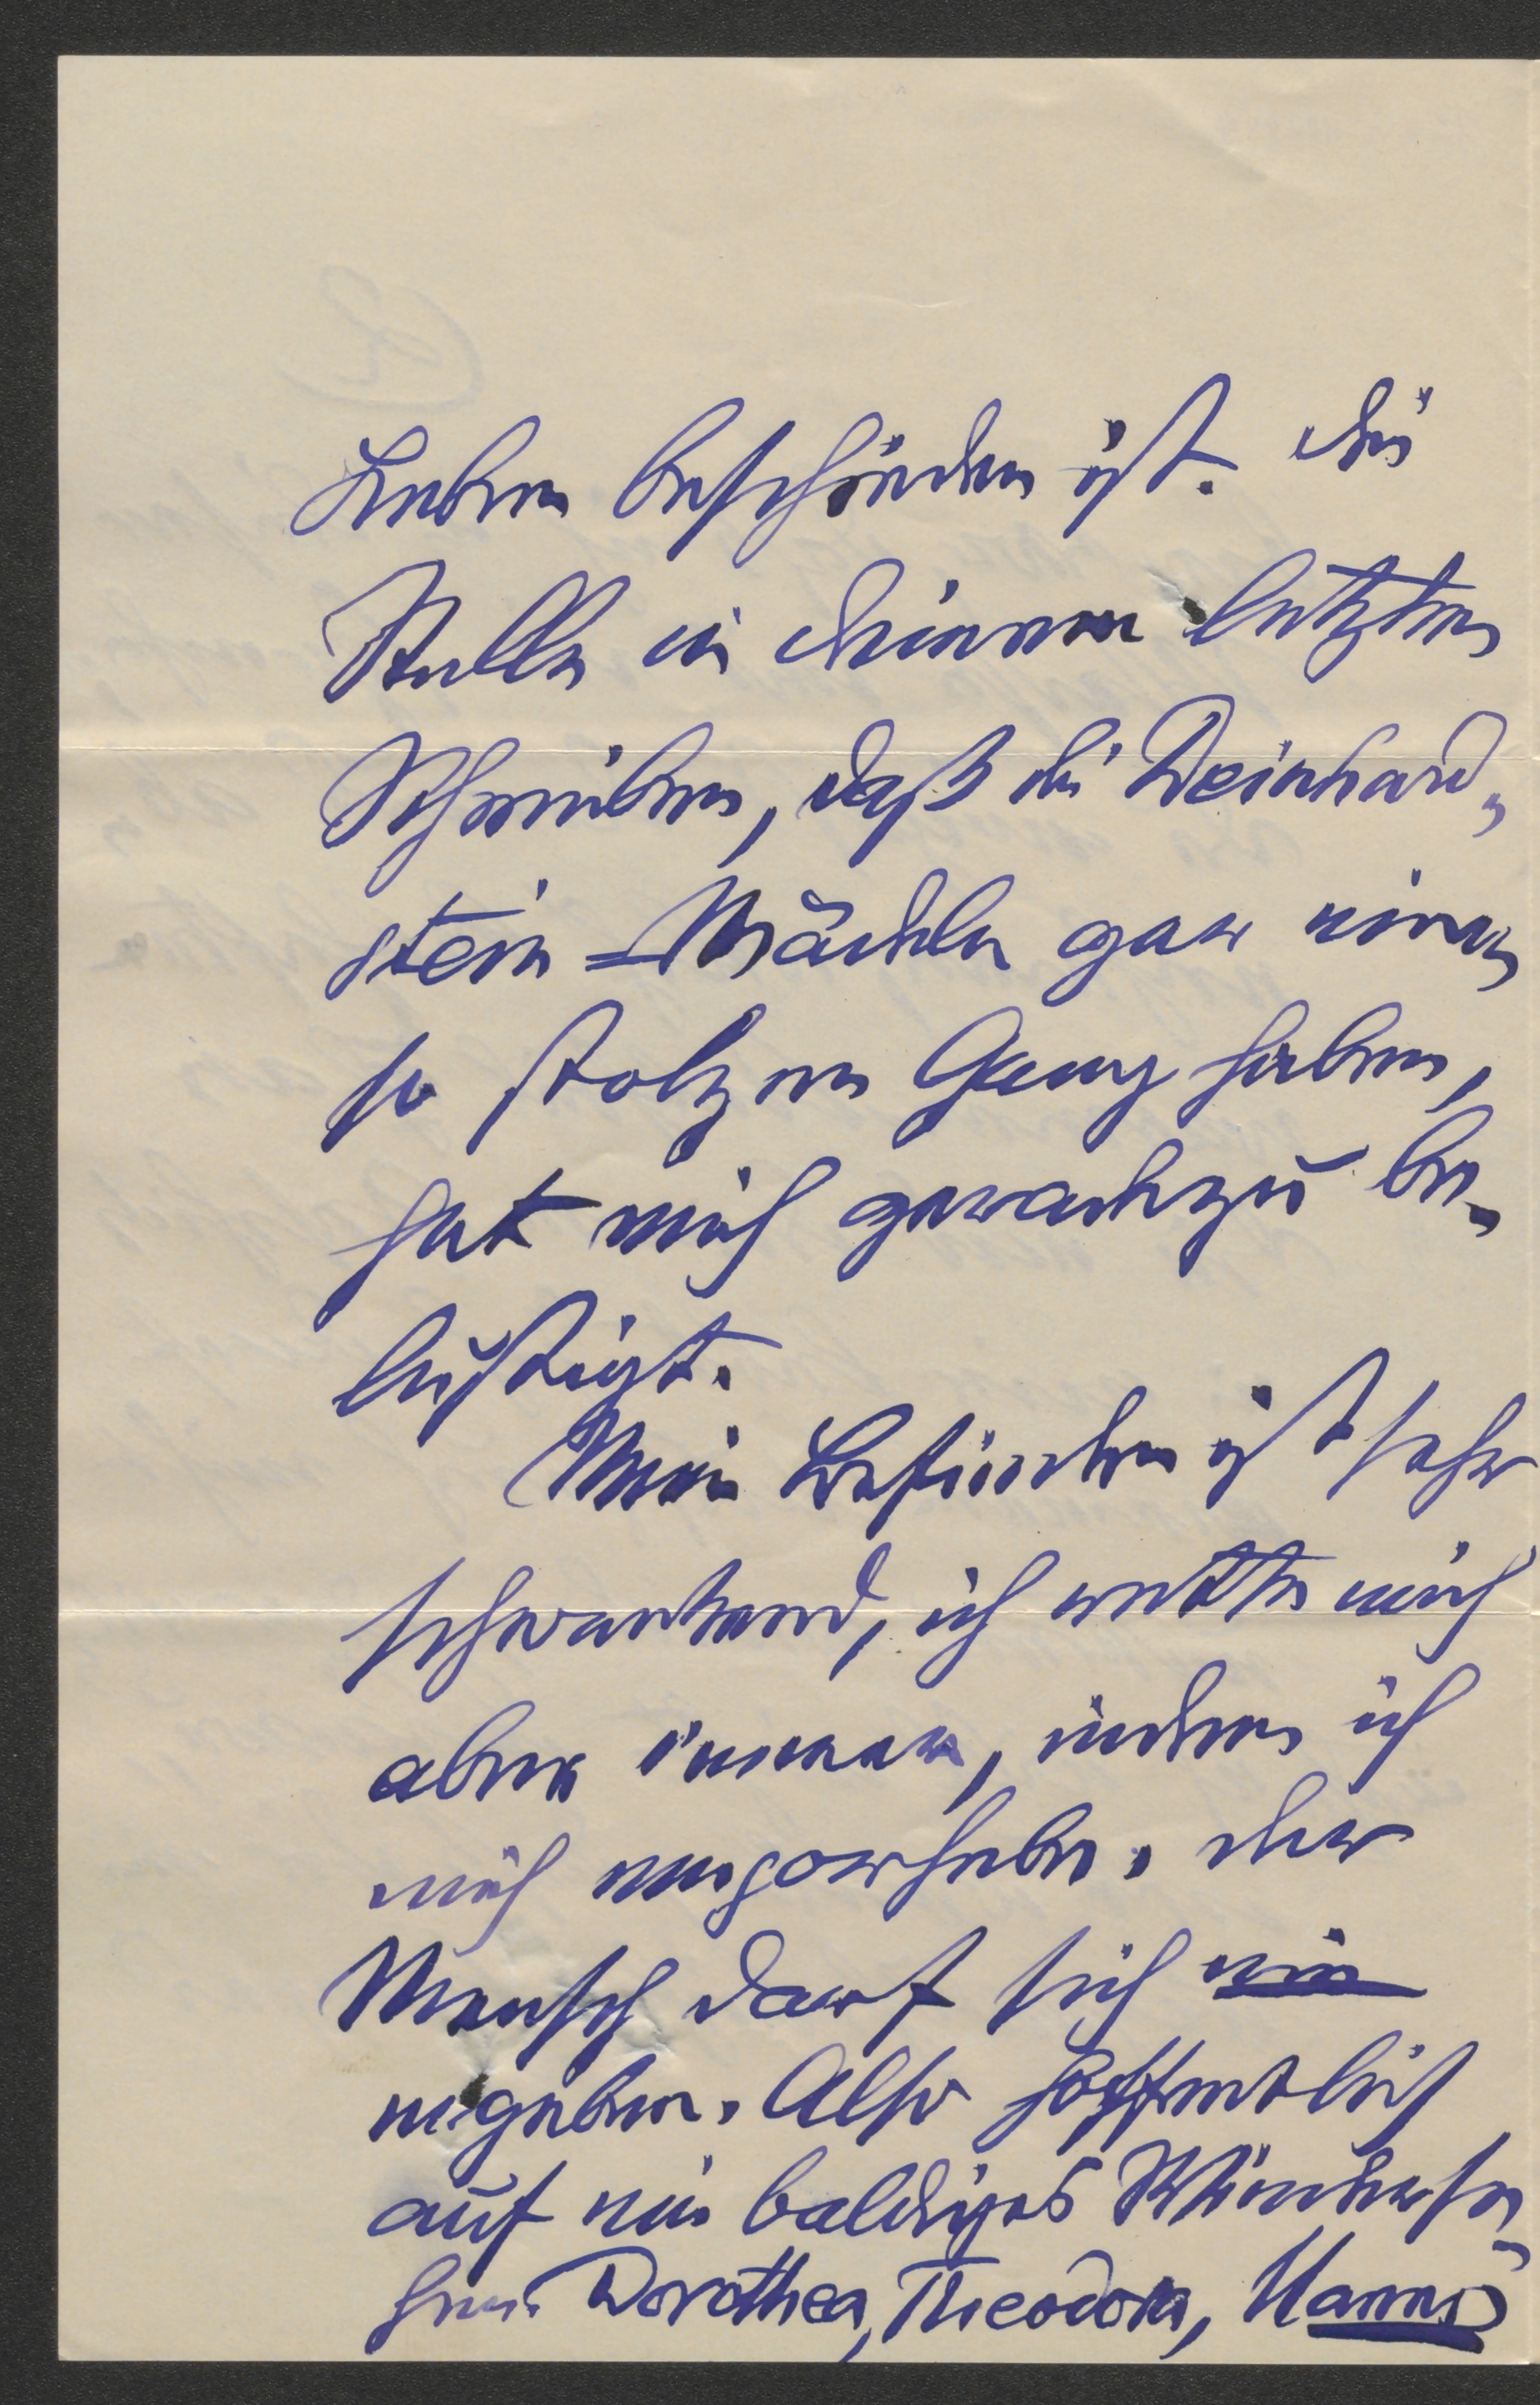 Leben beschieden ist. Die
Stelle in Deinem letzten
Schreiben, daß die Deinhard-
stein-Mädeln gar einen
so stolzen Gang haben,
hat mich geradezu be-
lustigt.
Mein Befinden ist sehr
schwankend, ich rette mich
aber immer, indem ich
mich emporhebe. Der
Mensch darf sich nie
ergeben. Also hoffentlich
auf ein baldiges Wiederse-
hen. Dorothea, Theodora,